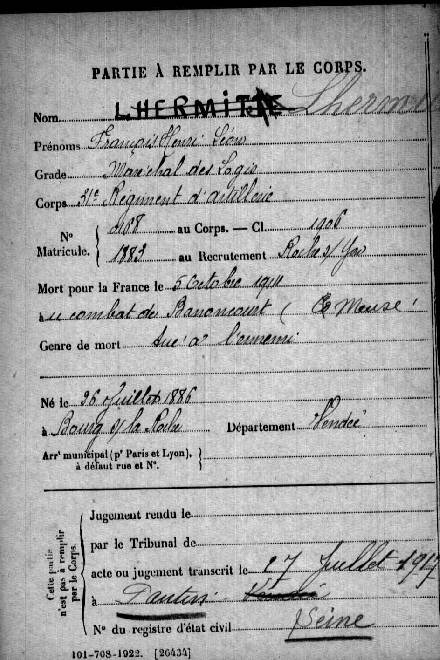 PARTIE À REMPLIR PAR LE CORPS.
Nom LHERMITTE Lhermi
Prénoms François Henri Léon
Grade Maréchal des Logis
Corps 51e Régiment d'artillerie
N° Matricule. { 4168 au Corps. — Cl. 1906
1883 au Recrutement Roche s/ Yon
Mort pour la France le 5 Octobre 1914
à au combat de Banoncourt ( Meuse )
Genre de mort tué à l'ennemi
Né le 26 Juillet 1886
à Bourg s/ la Roche Département Vendée
Arrt municipal (pr Paris et Lyon), à défaut rue et N°. {
Cette partie n'est pas à remplir par le Corps.
Jugement rendu le
par le Tribunal de
acte ou jugement transcrit le 27 Juillet 1917
à Pantin Vendée
N° du registre d'état civil Seine
101-708-1922. [26434]